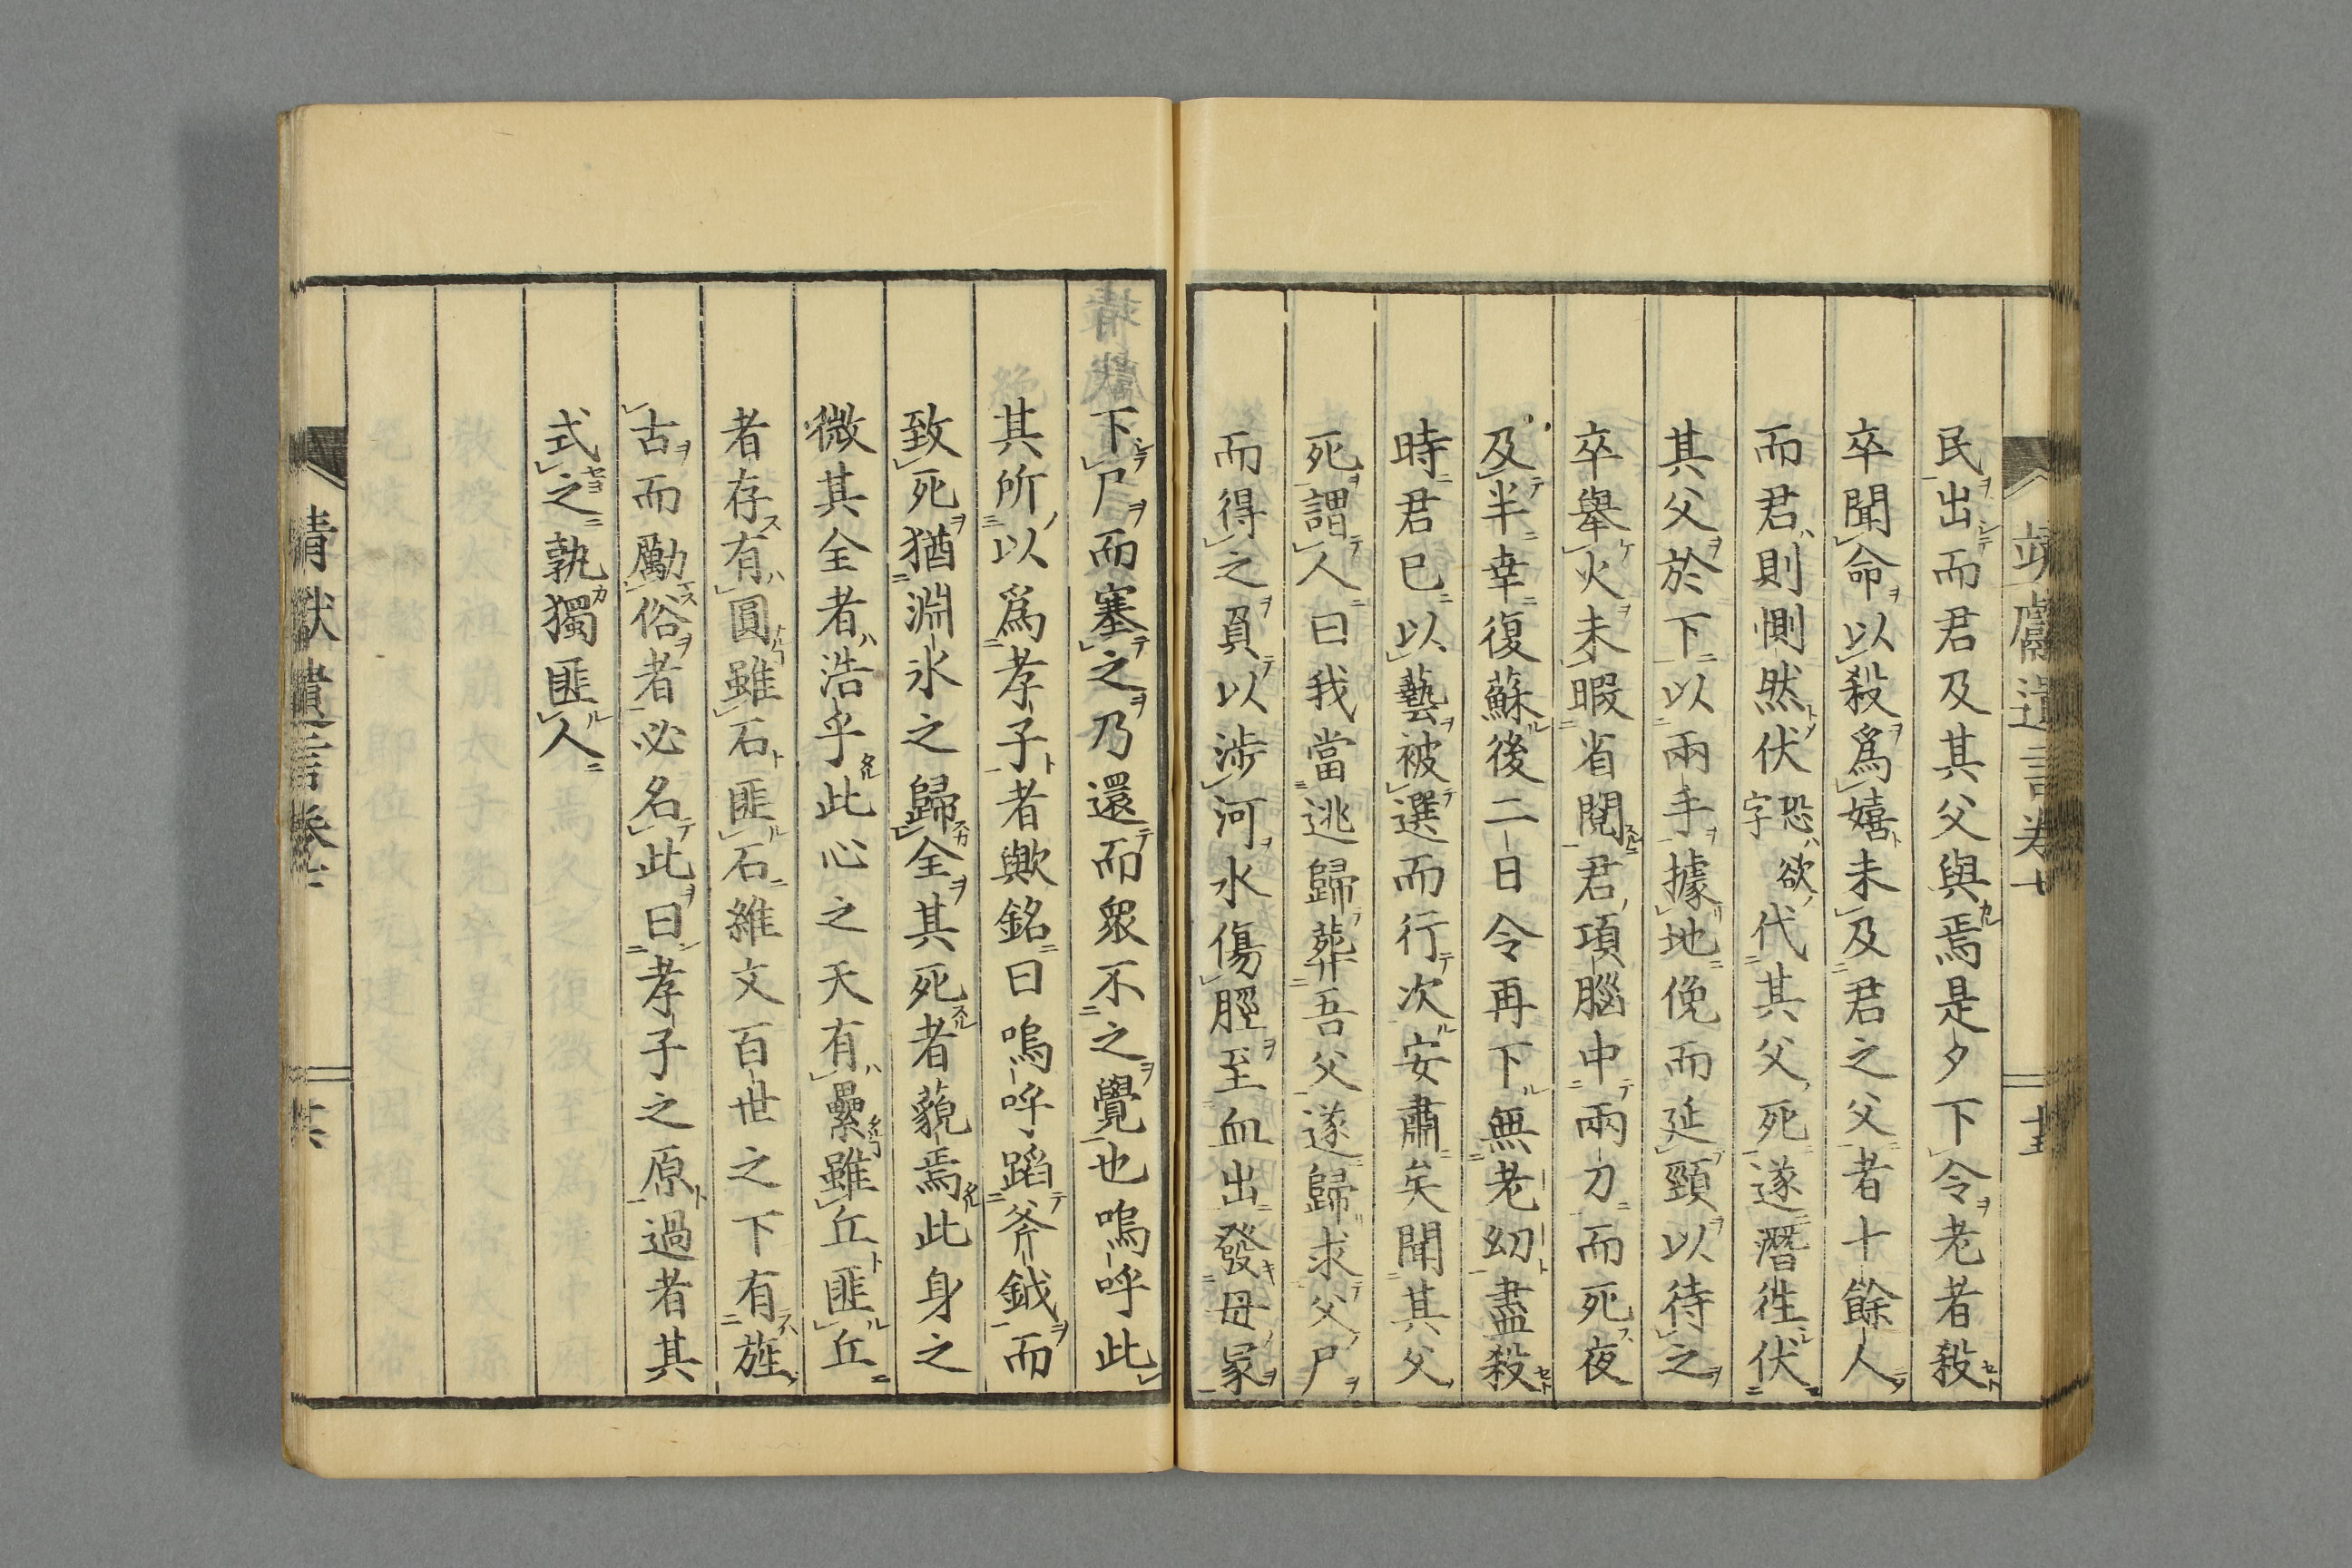 靖獻遺言卷七
民出而君及其父與焉是夕下令老者殺
卒聞命以殺爲嬉未及君之父者十餘人
而君則惻然伏恐欲字代其父死遂潛徃伏
其父於下以兩手據地俛而延頸以待之
卒舉火未暇省閱君項腦中兩刀而死夜
及半幸復蘇後二日令再下無老幼盡殺
時君已以藝被選而行次安肅矣聞其父
死謂人曰我當逃歸葬吾父遂歸求父尸
而得之負以涉河水傷脛至血出發母冢
下尸而塞之乃還而衆不之覺也嗚呼此
其所以爲孝子者歟銘曰嗚呼蹈斧鉞而
致死猶淵氷之歸全其死者藐焉此身之
微其全者浩乎此心之天有纍雖丘匪丘
者存有圓雖石匪石維文百世之下有旌
古而勵俗者必名此曰孝子之原過者其
式之孰獨匪人
靖獻遺言卷七